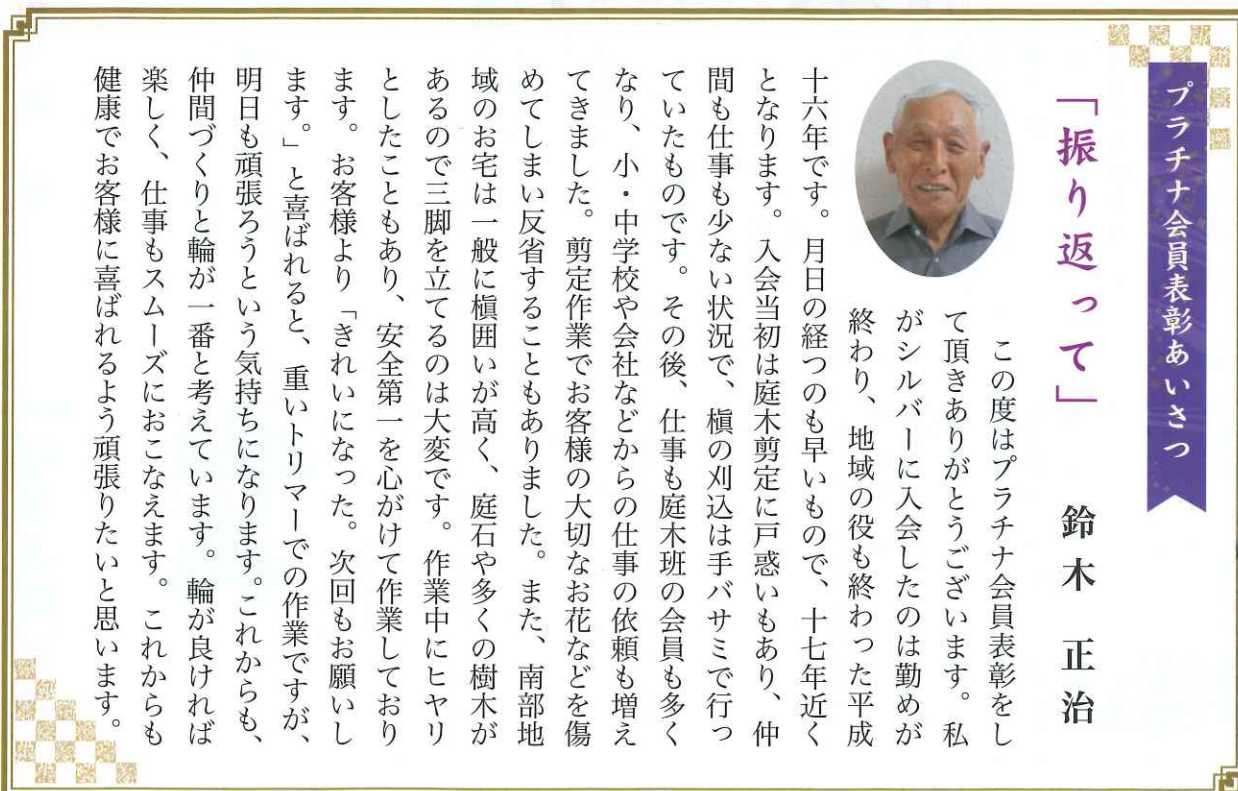 プラチナ会員表彰あいさつ
「振り返って」
鈴木 正治
この度はプラチナ会員表彰をし
て頂きありがとうございます。私
がシルバーに入会したのは勤めが
終わり、地域の役も終わった平成
十六年です。月日の経つのも早いもので、十七年近く
となります。入会当初は庭木剪定に戸惑いもあり、仲
間も仕事も少ない状況で、槇の刈込は手バサミで行っ
ていたものです。その後、仕事も庭木班の会員も多く
なり、小・中学校や会社などからの仕事の依頼も増え
てきました。剪定作業でお客様の大切なお花などを傷
めてしまい反省することもありました。また、南部地
域のお宅は一般に槇囲いが高く、庭石や多くの樹木が
あるので三脚を立てるのは大変です。作業中にヒヤリ
としたこともあり、安全第一を心がけて作業しており
ます。お客様より「きれいになった。次回もお願いし
ます。」と喜ばれると、重いトリマーでの作業ですが、
明日も頑張ろうという気持ちになります。これからも、
仲間づくりと輪が一番と考えています。輪が良ければ
楽しく、仕事もスムーズにおこなえます。これからも
健康でお客様に喜ばれるよう頑張りたいと思います。